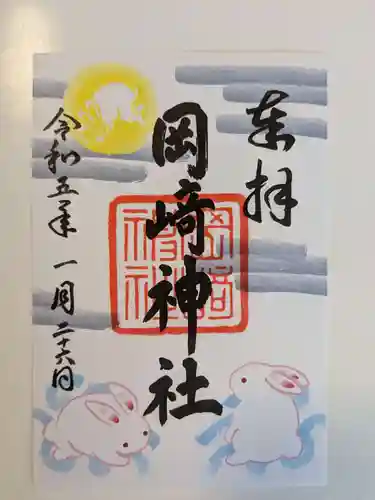 奉拝
岡崎神社
岡崎神社
令和五年一月二十六日